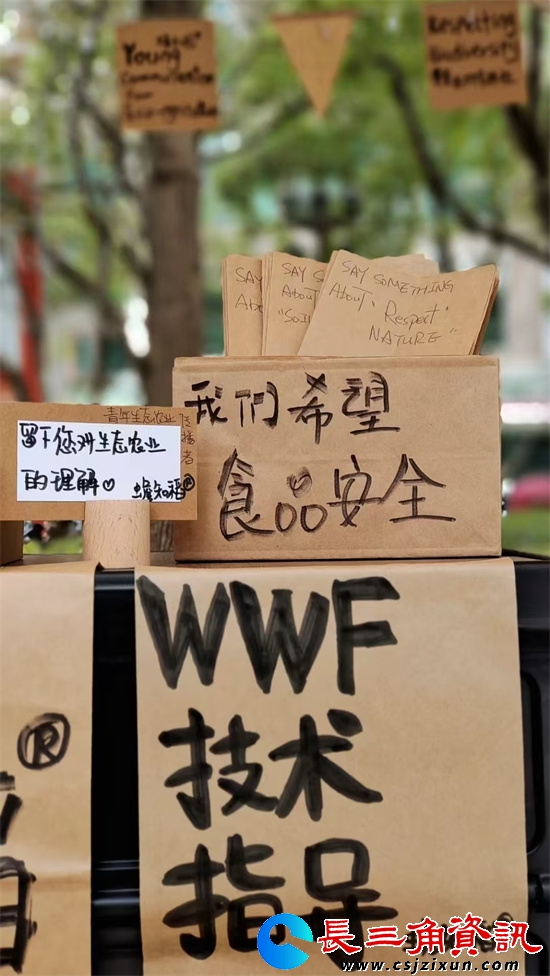 Young
Communicator
for
Respecting
biodiversity
SAY
Abo
SAY S
About
"Soil
SAY SOMETHING
About "Respect
NATURE"
我们希望
食品安全
青年生态农业传播者
留下您对生态农业
的理解♡ 蟾知稻®
WWF
技术
指导
®
長三角資訊
www.csjzixun.com